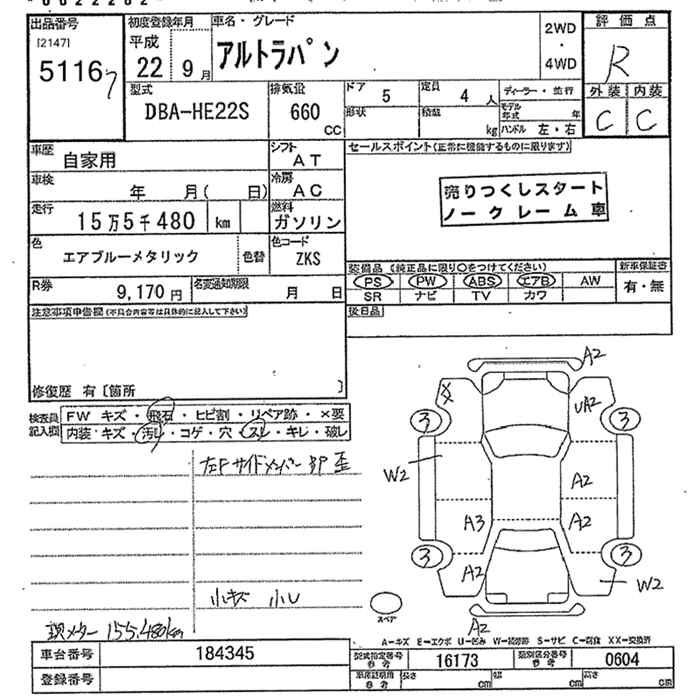 出品番号
[2147]
5116 7
初度登録年月
平成
22年 9月
車名・グレード
アルトラパン
2WD
・
4WD
評価点
R
外装 内装
C C
型式
DBA-HE22S
排気量
660
CC
ドア 5
定員 4 人
形状
積載 kg
ディーラー・並行
モデル年式 年
ハンドル 左・右
車歴 自家用
シフト AT
車検 年 月( 日)
冷房 AC
走行 15万5千480 km
燃料 ガソリン
色 エアブルーメタリック 色替
色コード ZKS
R券 9,170円
名変通知期限 月 日
セールスポイント(正常に機能するものに限ります)
売りつくしスタート
ノークレーム車
装備品(純正品に限り○をつけてください)
新車保証書
PS PW ABS エアB AW
有・無
SR ナビ TV カワ
後日品
注意事項申告欄(不具合内容等は具体的に記入して下さい)
修復歴 有〔箇所 〕
検査員記入欄
FW キズ・飛石・ヒビ割・リペア跡・×要
内装・キズ・汚レ・コゲ・穴・スレ・キレ・破レ
左Fサイドメンバー 歪
小キズ 小U
現メーター 155,480km
A2
UA2
3
3
W2
A2
A3
A2
3
3
A2
W2
A2
スペア
A=キズ E=エクボ U=凹み W=補修跡 S=サビ C=腐食 XX=交換済
車台番号 184345
登録番号
型式指定番号 参考 16173
類別区分番号 参考 0604
車庫証明用 参考 長さ cm 幅 cm 高さ cm